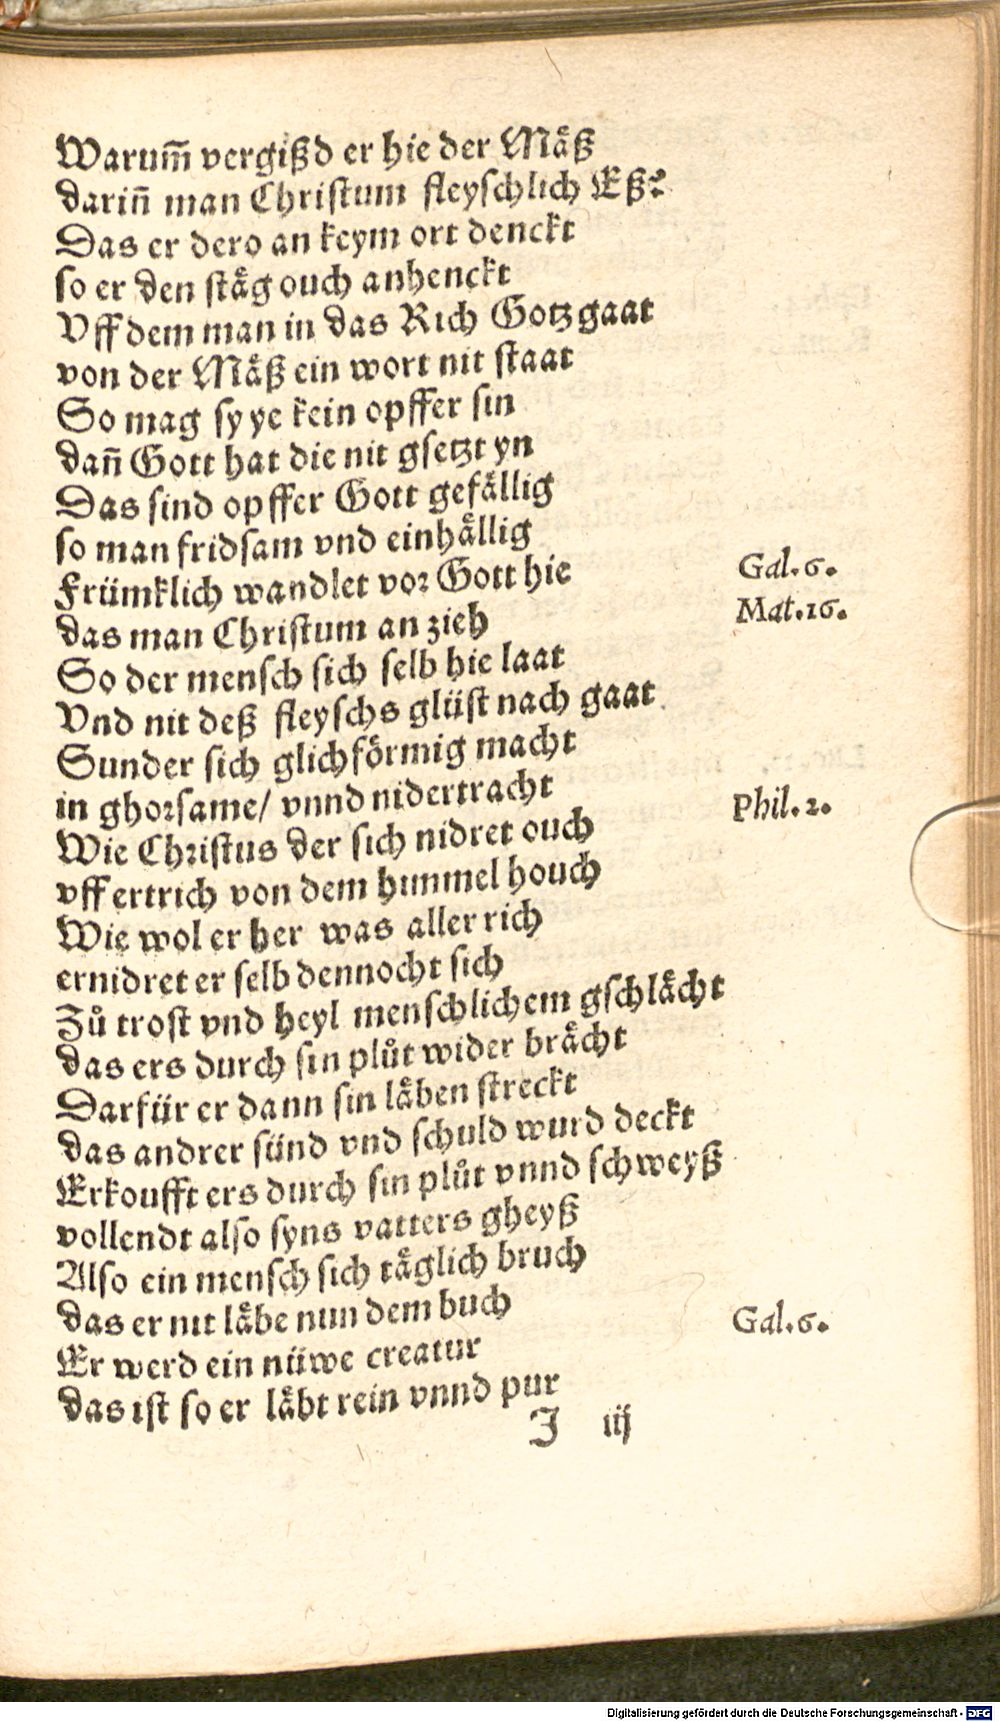 Warum̃ vergißd er hie der Mäß
dariñ man Christum fleyschlich Eß?
Das er dero an keym ort denckt
so er den stäg ouch anhenckt
Vff dem man in das Rich Gotz gaat
von der Mäß ein wort nit staat
So mag sy ye kein opffer sin
dañ Gott hat die nit gsetzt yn
Das sind opffer Gott gefällig
so man fridsam vnd einhällig
Frümklich wandlet vor Gott hie Gal.6.
das man Christum an zieh Mat.16.
So der mensch sich selb hie laat
Vnd nit deß fleyschs glüst nach gaat
Sunder sich glichförmig macht
in ghorsame/ vnnd nidertracht Phil.2.
Wie Christus der sich nidret ouch
vff ertrich von dem himmel houch
Wie wol er her was aller rich
ernidret er selb dennocht sich
Zuͦ trost vnd heyl menschlichem gschlächt
das ers durch sin pluͦt wider brächt
Darfür er dann sin läben streckt
das andrer sünd vnd schuld wurd deckt
Erkoufft ers durch sin pluͦt vnnd schweyß
vollendt also syns vatters gheyß
Also ein mensch sich täglich bruch
das er nit läbe nun dem buch Gal.6.
Er werd ein nüwe creatur
das ist so er läbt rein vnnd pur
J iij
Digitalisierung gefördert durch die Deutsche Forschungsgemeinschaft - DFG